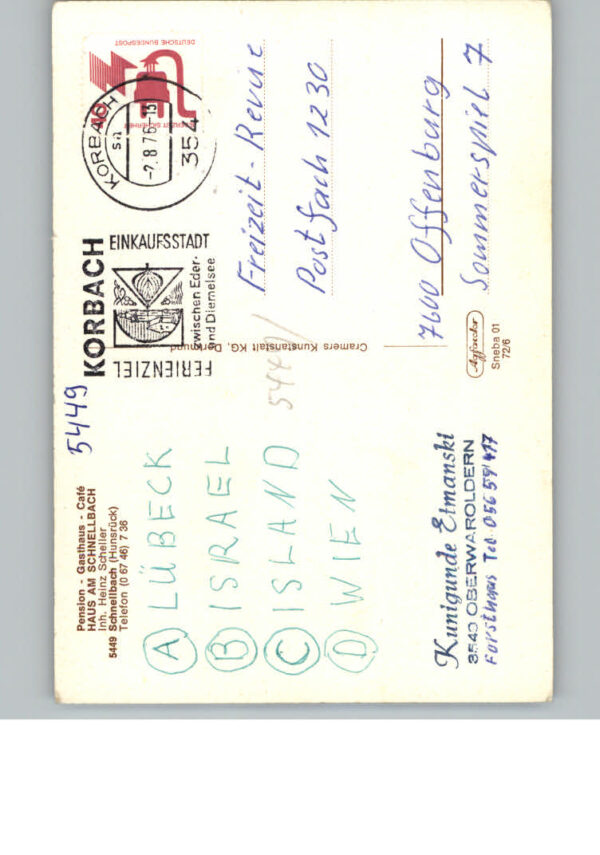 Pension - Gasthaus - Café
HAUS AM SCHNELLBACH
Inh. Heinz Scheller
5449 Schnellbach (Hunsrück)
Telefon (0 67 46) 7 36
5449
Ⓐ LÜBECK
Ⓑ ISRAEL
Ⓒ ISLAND
Ⓓ WIEN
Kunigunde Etmanski
3540 OBERWAROLDERN
Forsthaus Tel. 05659/417
5449/
Cramers Kunstanstalt KG, Dortmund
FERIENZIEL
KORBACH
EINKAUFSSTADT
zwischen Eder-
und Diemelsee
KORBACH
sa
-2.8.76-13
354
DEUTSCHE BUNDESPOST
Freizeit-Revue
Postfach 1230
7600 Offenburg
Sommerspiel 7
Agfacolor
Sneba 01
72/6